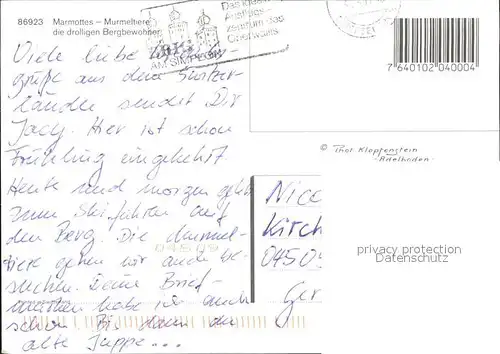 86923 Marmottes – Murmeltiere
die drolligen Bergbewohner
BRIG
AM SIMPLON
Zentrum des
Oberwallis
7 640102 040004
© Phot. Klopfenstein
Adelboden
Viele liebe
grüße aus dem Switzer-
ländle sendet Dir
Jacy. Hier ist schon
Frühling eingekehrt.
Heute und morgen geht
zum Skifahren auf
den Berg. Die Murmel-
tiere gehen wir auch be-
suchen. Deine Brief-
marken habe ich auch
schon. Bis dann
alte Suppe ...
04509
Nice
Kirch
04509
Ger
privacy protection
oldthing.com